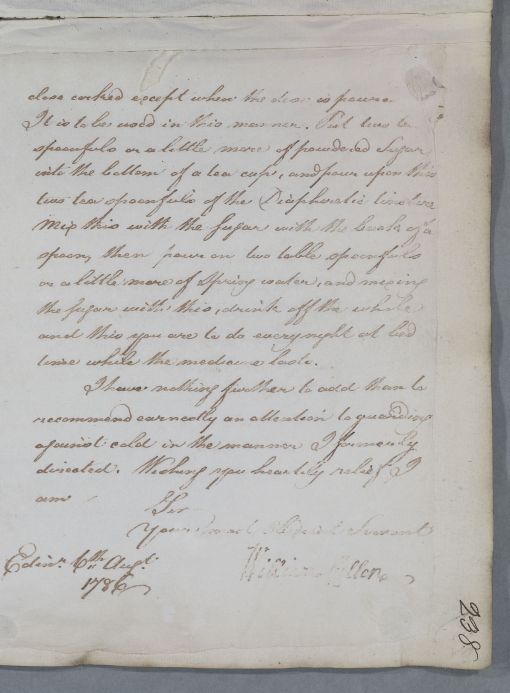 close corked except when the dose is poured
It is to be used in this manner. Put two tea
spoonfuls or a little more of powdered Sugar
into the bottom of a tea cup, and pour upon this
two tea spoonfuls of the Diaphoretic tincture
Mix this with the Sugar with the back of a
spoon, then pour on two table spoonfuls
or a little more of Spring water, and mixing
the Sugar with this, drink off the whole
and this you are to do every night at bed
time while the medicine lasts.
I have nothing further to add than to
recommend earnestly an attention to guarding
against cold in the manner I formerly
directed. Wishing you heartily relief, I
am
Sir
Your most Obedient Servant
William Cullen
Edinr. 6th. Augt.
1786
238